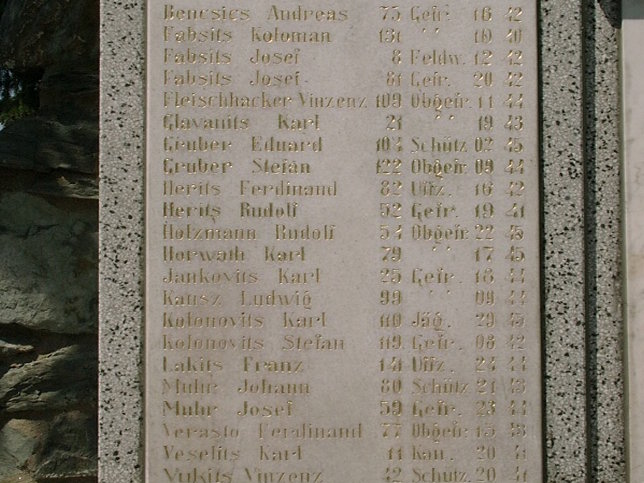 Bencsics Andreas 75 Gefr. 16 42
Fabsits Koloman 131 " 10 40
Fabsits Josef 8 Feldw. 12 42
Fabsits Josef 81 Gefr. 20 42
Fleischhacker Vinzenz 109 Obgefr. 11 44
Glavanits Karl 21 " 19 43
Gruber Eduard 104 Schütz 02 45
Gruber Stefan 122 Obgefr. 09 44
Herits Ferdinand 82 Uffz. 16 42
Herits Rudolf 52 Gefr. 19 41
Holzmann Rudolf 54 Obgefr. 22 45
Horwath Karl 79 " 17 45
Jankovits Karl 25 Gefr. 18 44
Kausz Ludwig 99 " 09 44
Kolonovits Karl 110 Jäg. 29 45
Kolonovits Stefan 119 Gefr. 08 42
Lakits Franz 141 Uffz. 24 44
Muhr Johann 80 Schütz 21 43
Muhr Josef 59 Gefr. 23 44
Verasto Ferdinand 77 Obgefr. 15
Veselits Karl 11 Kan. 20 41
Vukits Vinzenz 42 Schütz. 20 41